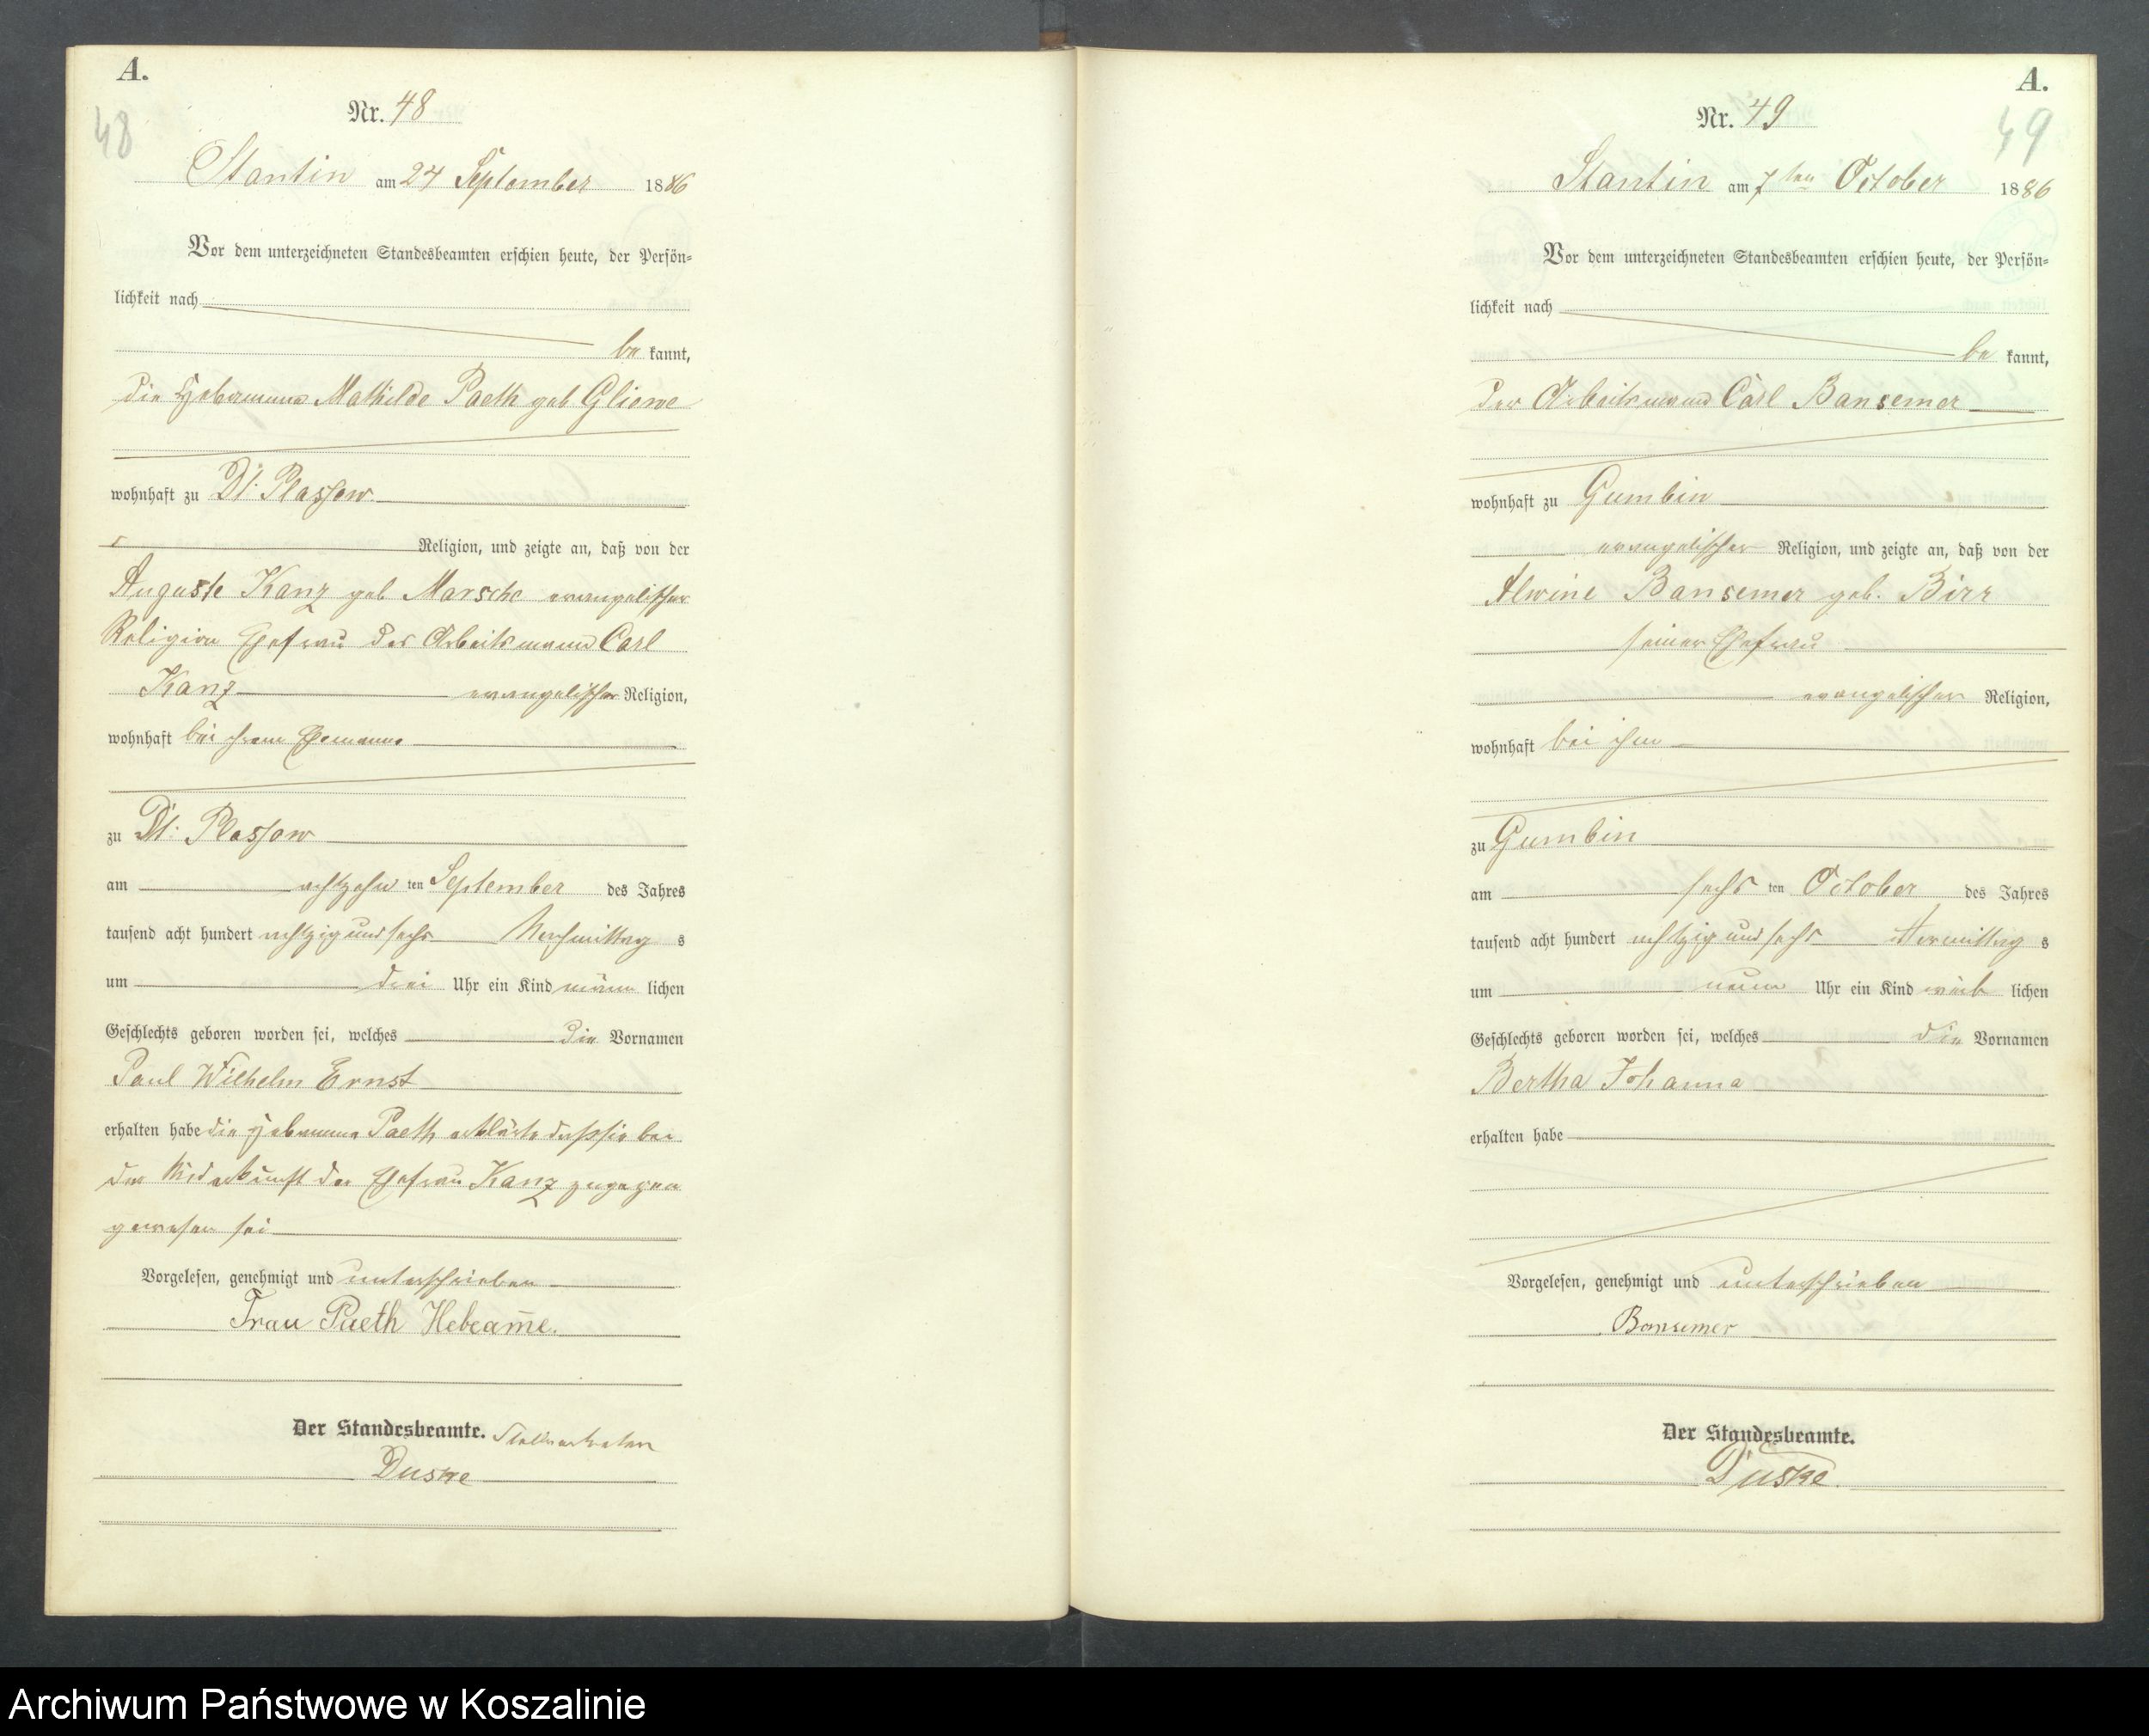 A.
48
Nr. 48
Stantin am 24 September 1886
Vor dem unterzeichneten Standesbeamten erschien heute, der Persön-
lichkeit nach
be kannt,
die Hebamme Mathilde Paeth geb Gliewe
wohnhaft zu Dt: Plassow
Religion, und zeigte an, daß von der
Auguste Kanz geb Marschc evangelischer
Religion Ehefrau des Arbeitsmann Carl
Kanz evangelischer Religion,
wohnhaft bei ihrem Ehemanne
zu Dt: Plassow
am achtzehn ten September des Jahres
tausend acht hundert achtzig und sechs Nachmittag s
um drei Uhr ein Kind männ lichen
Geschlechts geboren worden sei, welches die Vornamen
Paul Wilhelm Ernst
erhalten habe die Hebamme Paeth erklärte daß sie bei
der Niederkunft der Ehefrau Kanz zugegen
gewesen sei
Vorgelesen, genehmigt und unterschrieben
Frau Paeth Hebeam̅e.
Der Standesbeamte.
Duske
A.
49
Nr. 49
Stantin am 7ten October 1886
Vor dem unterzeichneten Standesbeamten erschien heute, der Persön-
lichkeit nach
be kannt,
der Arbeitsmann Carl Bansemer
wohnhaft zu Gumbin
evangelischer Religion, und zeigte an, daß von der
Alwine Bansemer geb. Birr
seiner Ehefrau
evangelischer Religion,
wohnhaft bei ihm
zu Gumbin
am sechs ten October des Jahres
tausend acht hundert achtzig und sechs Vormittag s
um neun Uhr ein Kind weib lichen
Geschlechts geboren worden sei, welches die Vornamen
Bertha Johanna
erhalten habe
Vorgelesen, genehmigt und unterschrieben
Bansemer
Der Standesbeamte.
Duske.
Archiwum Państwowe w Koszalinie